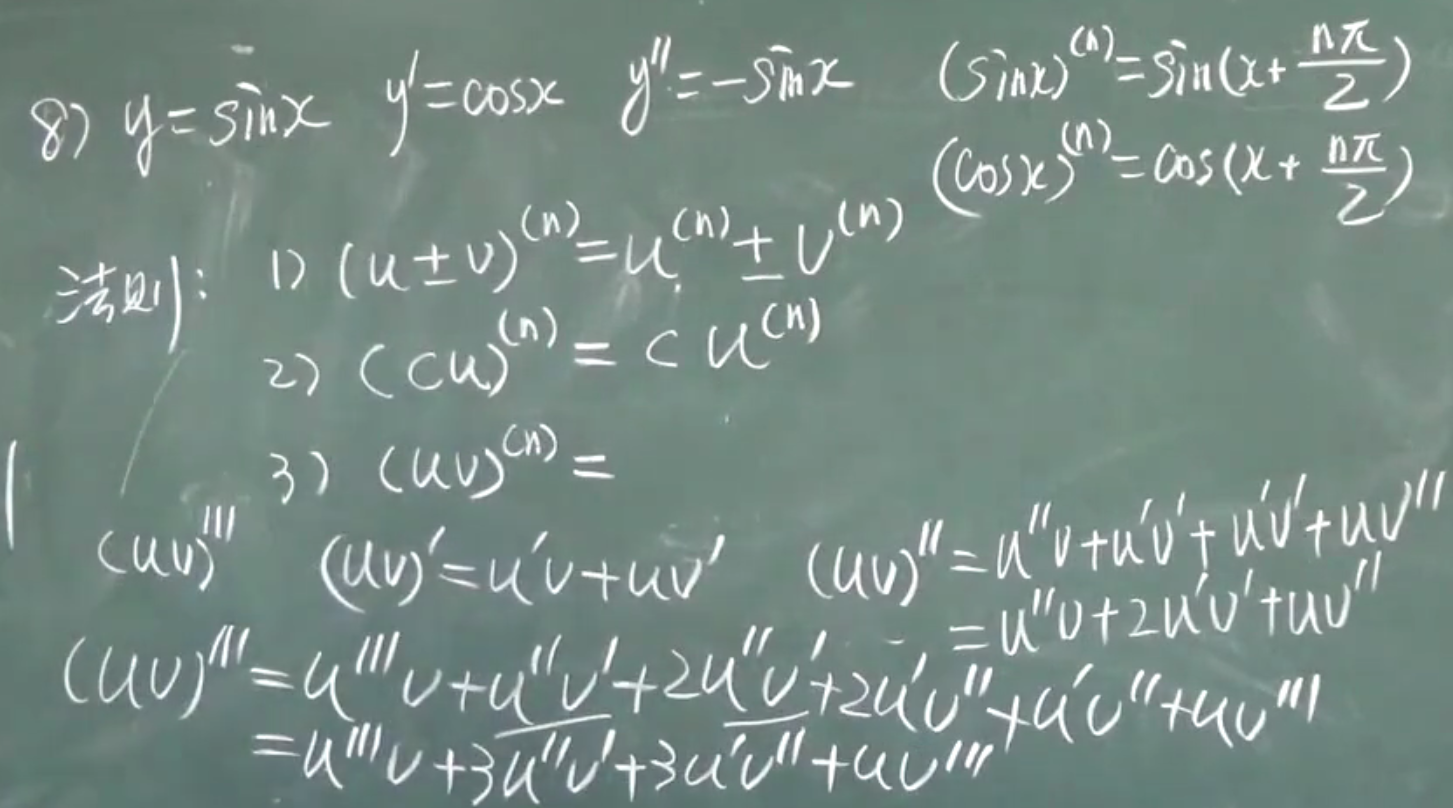 8) y=sinx y'=cosx y''=-sinx (sinx)^(n)=sin(x+nπ/2)
(cosx)^(n)=cos(x+nπ/2)
法则: 1) (u±v)^(n)=u^(n)±v^(n)
2) (cu)^(n)=cu^(n)
3) (uv)^(n)=
(uv)''' (uv)'=u'v+uv' (uv)''=u''v+u'v'+u'v'+uv''
=u''v+2u'v'+uv''
(uv)'''=u'''v+u''v'+2u''v'+2u'v''+u'v''+uv'''
=u'''v+3u''v'+3u'v''+uv'''